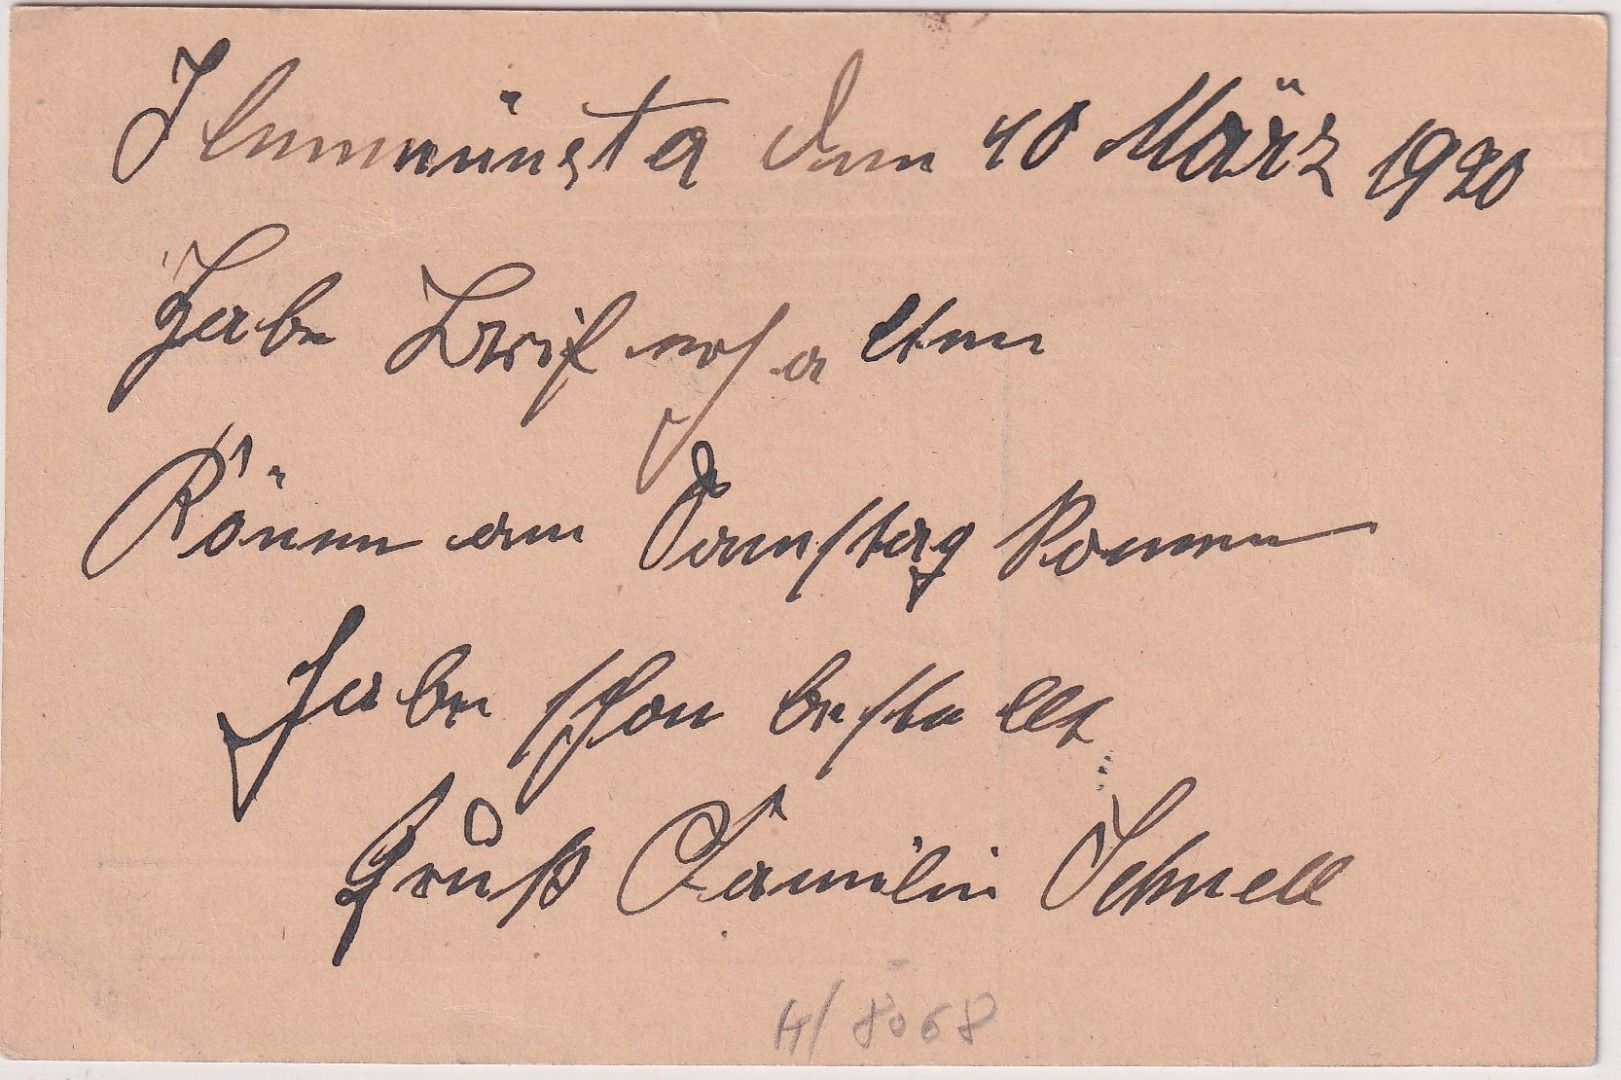 Ilmmünsta den 10 März 1920
Habe Brief erhalten
Könen am Samstag komen
habe schon bestellt
Gruß Familie Schnell
H/ 8068